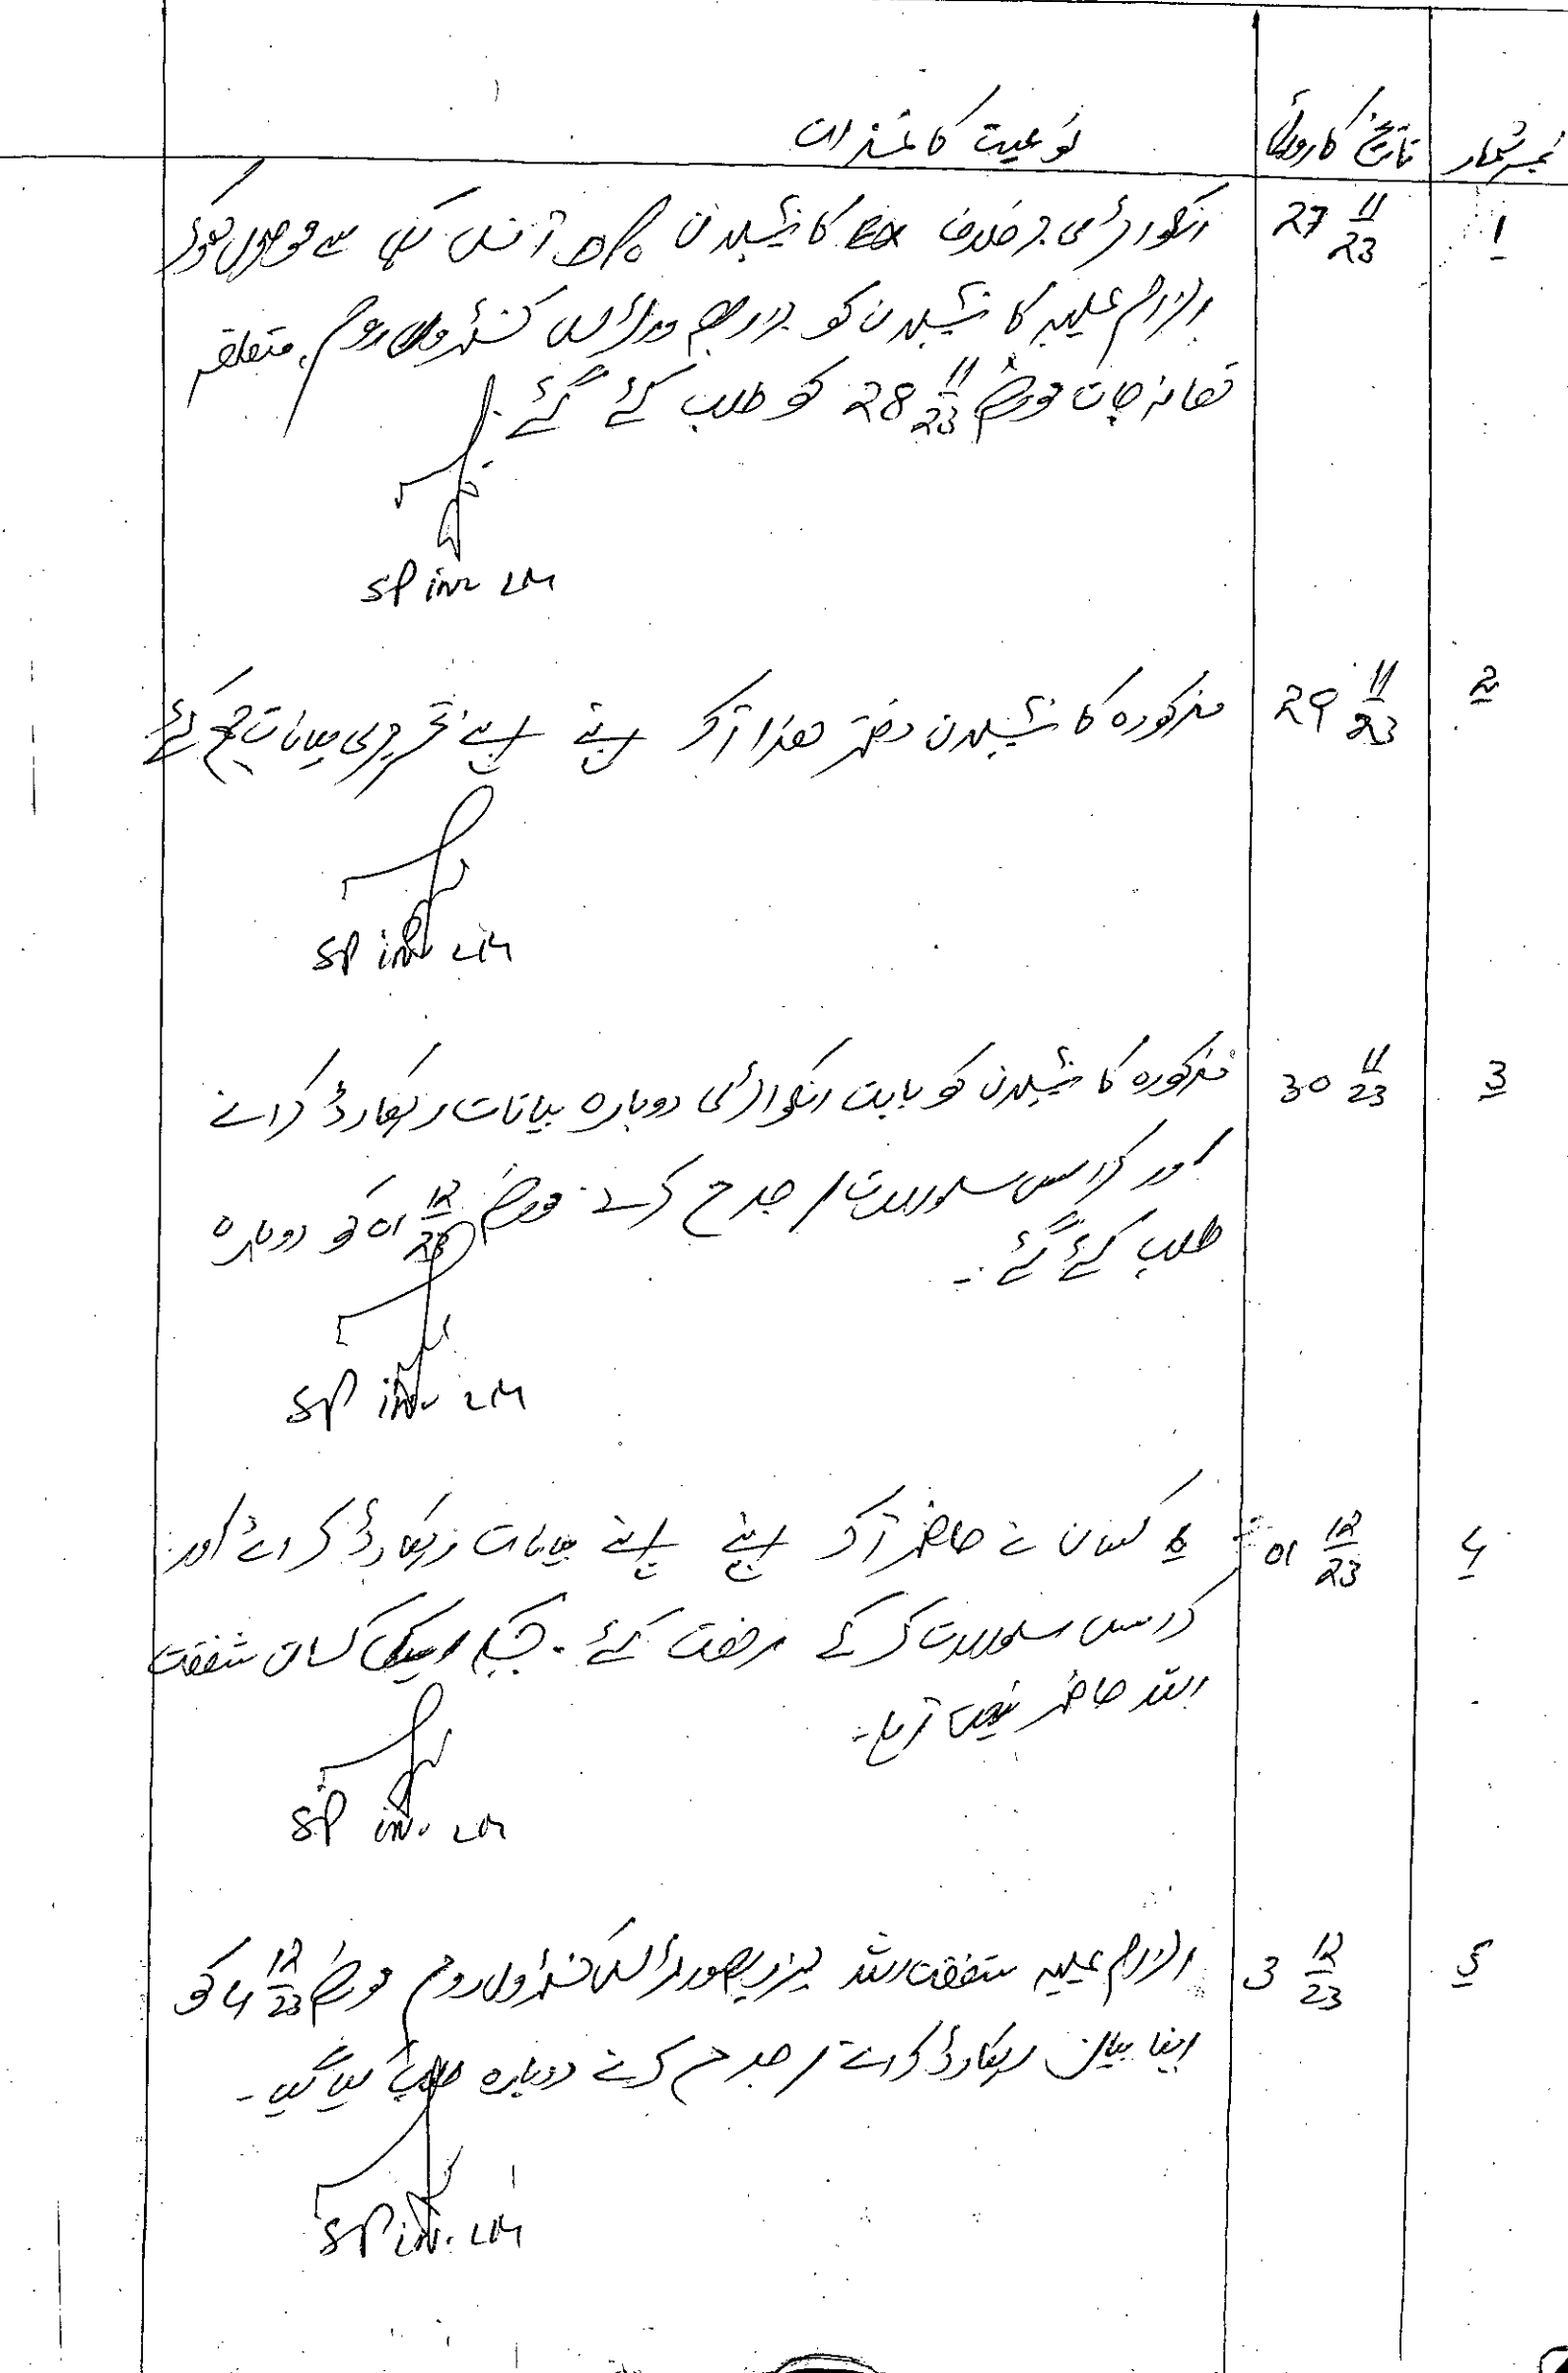 نمبر شمار تاریخ کاروائی نوعیت کاغذات
1 27 11/23 انکوائری برخلاف EX کانسٹیبلان D/o آفس سے موصول ہوکر
الزام علیہ کانسٹیبلان کو بذریعہ وائرلیس کنٹرول روم، متعلقہ
تھانہ جات مورخہ 28 11/23 کو طلب کئے گئے۔
SP inv LM
2 29 11/23 مذکورہ کانسٹیبلان دفتر ھذا آکر اپنے اپنے تحریری بیانات جمع کئے
SP inv LM
3 30 11/23 مذکورہ کانسٹیبلان کو بابت انکوائری دوبارہ بیانات ریکارڈ کرانے
اور کراس سوالات / جرح کرنے مورخہ 01 12/23 کو دوبارہ
طلب کئے گئے۔
SP inv. LM
4 01 12/23 6 کسان نے حاضر آکر اپنے اپنے بیانات ریکارڈ کرائے اور
کراس سوالات کرکے رخصت کئے۔ جبکہ ایک کسان شفقت
اللہ حاضر نہیں آیا۔
SP inv. LM
5 3 12/23 الزام علیہ شفقت اللہ بذریعہ وائرلیس کنٹرول روم مورخہ 4 12/23 کو
اپنا بیان ریکارڈ کرانے / جرح کرنے دوبارہ طلب کیا گیا۔
SP inv. LM